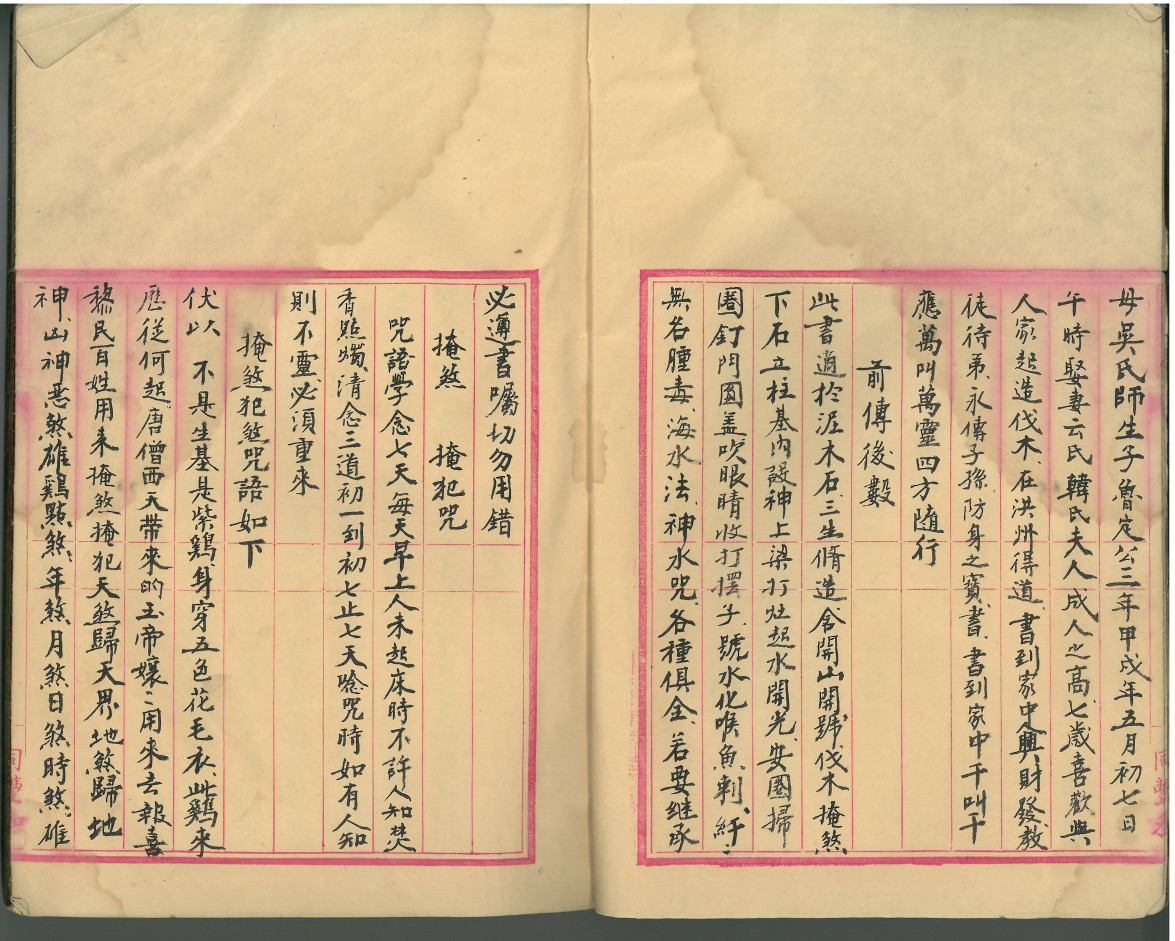 母吳氏師生子魯定公三年甲戌年五月初七日
午時娶妻云氏韓氏夫人成人之高七歲喜歡與
人家起造伐木、在洪州得道、書到家中人興財發、教
徒待弟、永傳子孫、防身之寶書、書到家中千叫千
應萬叫萬靈四方隨行
前傳後斅
此書適於泥木石、三生脩造、含開山開號、伐木掩煞
下石立柱基內設神上梁打灶起水開光、安圈掃
圈釘門圓蓋吹眼睛收打擺子、號水化喉魚刺、
無名腫毒、海水法、神水咒、各種俱全、若要继承
必遵書囑切勿用錯
掩煞 掩犯咒
咒語學念七天每天早上人未起床時不許人知焚
香點燭、清念三道初一到初七止七天唸咒時如有人知
則不靈必須重來
掩煞犯煞咒語如下
伏以 不是生基是紫鷄、身穿五色花毛衣、此鷄來
歷從何起、唐僧西天带來的玉帝孃〻用來去報喜
黎民百姓用來掩煞掩犯天煞歸天界地煞歸地
神、凶神恶煞雄鷄點煞、年煞月煞日煞時煞、雄